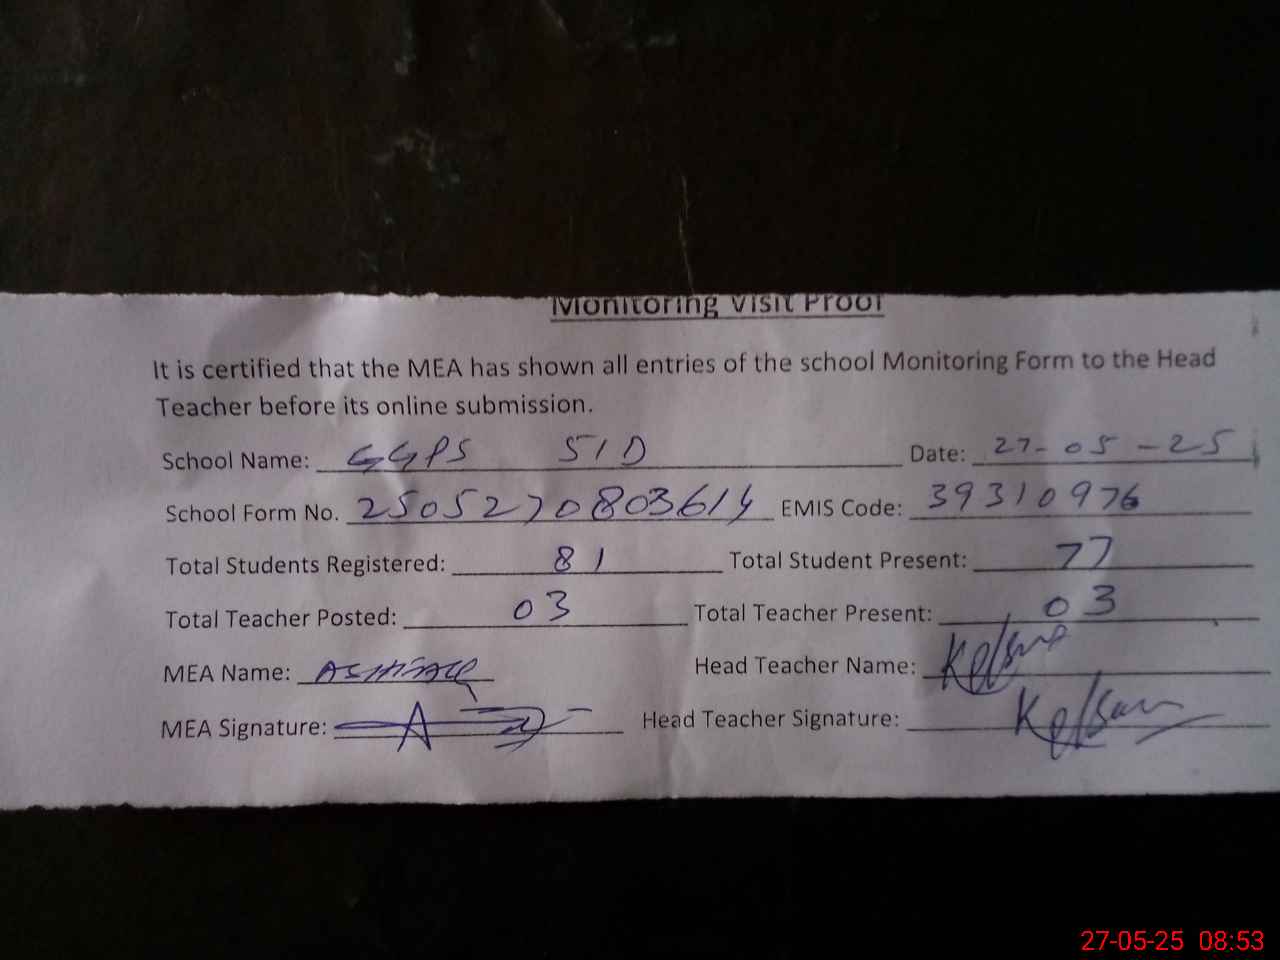 Monitoring Visit Proof
It is certified that the MEA has shown all entries of the school Monitoring Form to the Head
Teacher before its online submission.
School Name: GGPS SID Date: 27-05-25
School Form No. 2505270803614 EMIS Code: 39310976
Total Students Registered: 81 Total Student Present: 77
Total Teacher Posted: 03 Total Teacher Present: 03
MEA Name: ASHFAQ Head Teacher Name:
MEA Signature: Head Teacher Signature:
27-05-25 08:53